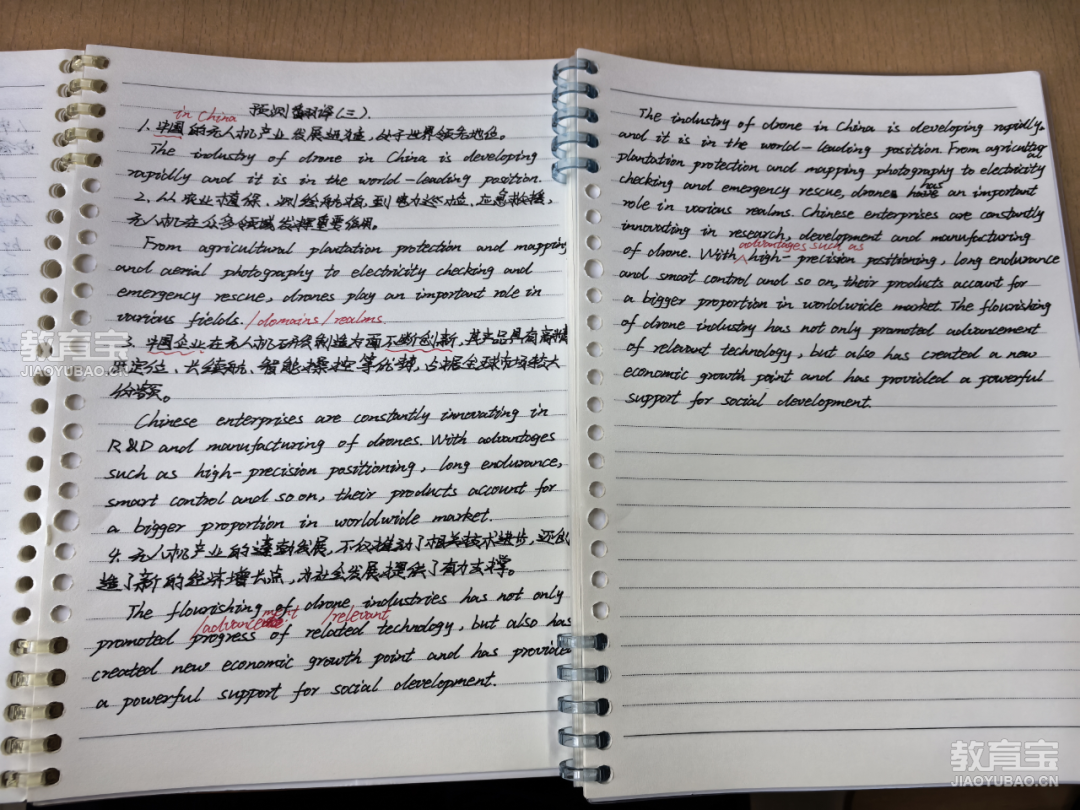 in China 预测翻译(三).
1. 中国的无人机产业发展迅速,处于世界领先地位。
The industry of drone in China is developing
rapidly and it is in the world-leading position.
2. 从农业植保、测绘航拍到电力巡检、应急救援,
无人机在众多领域发挥重要作用。
From agricultural plantation protection and mapping
and aerial photography to electricity checking and
emergency rescue, drones play an important role in
various fields. /domains/realms
3. 中国企业在无人机研发制造方面不断创新,其产品具有高精
度定位、长续航、智能操控等优势,占据全球市场较大
份额。
Chinese enterprises are constantly innovating in
R&D and manufacturing of drones. With advantages
such as high-precision positioning, long endurance,
smart control and so on, their products account for
a bigger proportion in worldwide market.
4. 无人机产业的蓬勃发展,不仅推动了相关技术进步,还创
造了新的经济增长点,为社会发展提供了有力支撑。
The flourishing of drone industries has not only
/advancement /relevant
promoted progress of related technology, but also has
created new economic growth point and has provided
a powerful support for social development.
The industry of drone in China is developing rapidly,
and it is in the world-leading position. From agricultural
plantation protection and mapping photography to electricity
checking and emergency rescue, drone has an important
role in various realms. Chinese enterprises are constantly
innovating in research, development and manufacturing
advantages such as
of drone. With high-precision positioning, long endurance
and smart control and so on, their products account for
a bigger proportion in worldwide market. The flourishing
of drone industry has not only promoted advancement
of relevant technology, but also has created a new
economic growth point and has provided a powerful
support for social development.
教育宝
JIAOYUBAO.CN
教育宝
JIAOYUBAO.CN